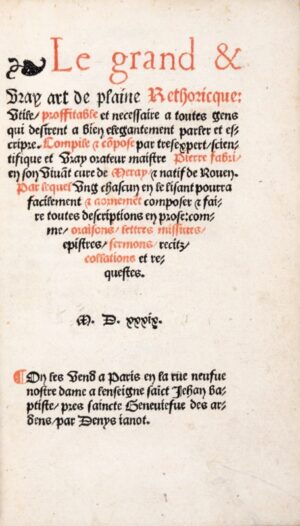 Le grand &
vray art de plaine Rethoricque:
Utile/ proffitable et necessaire a toutes gens
qui desirent a bien elegantement parler et es-
cripre. Compile & cõpose par tresexpert/scien-
tifique et vray orateur maistre Pierre fabri/
en son vivãt cure de Meray/ & natif de Rouen.
Par lequel vng chascun en le lisant pourra
facilement & aornemẽt composer & fai-
re toutes descriptions en prose:com-
me/ oraisons/ lettres missiues/
epistres/ sermons/ recitz/
collations et re-
questes.
M. D. xxxix.
¶On les vend a Paris en la rue neufue
nostre dame a lenseigne saĩct Jehan ba-
ptiste/ pres saincte Geneuiefue des ar-
dens/ par Denys ianot.